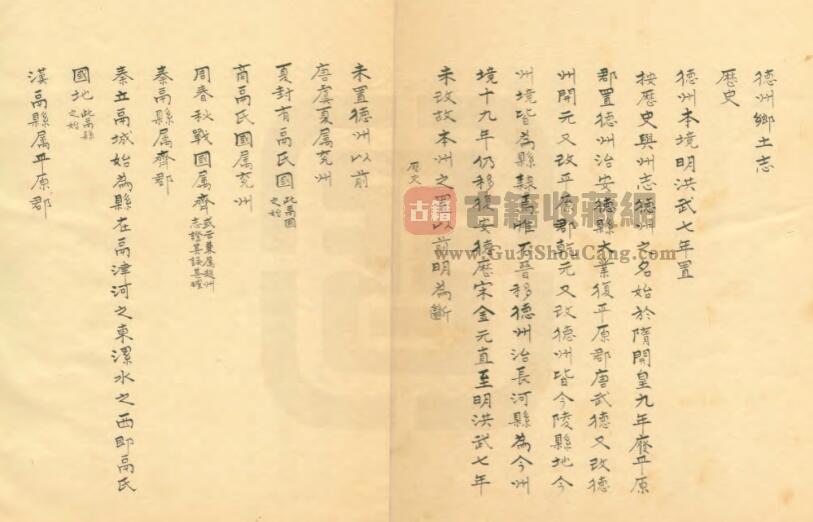 德州鄉土志
歷史
德州本境明洪武七年置
按歷史與州志德州之名始於隋開皇九年廢平原
郡置德州治安德縣大業復平原郡唐武德又改德
州開元又改平原郡乾元又改德州皆今陵縣地今
州境皆為縣隸焉惟石晉移德州治長河縣為今州
境十九年仍移復安德歷宋金元直至明洪武七年
未改故本州之置以前明為斷
歷史
未置德州以前
唐虞夏属兗州
夏封有鬲氏國此鬲國之始
商鬲氏國属兗州
周春秋戰國属齊或云兼属趙州志證其誤甚確
秦鬲縣属齊郡
秦立鬲城始為縣在鬲津河之東漯水之西即鬲氏
國地此鬲縣之始
漢鬲縣属平原郡
古籍
古籍收藏網
www.GuJiShouCang.com